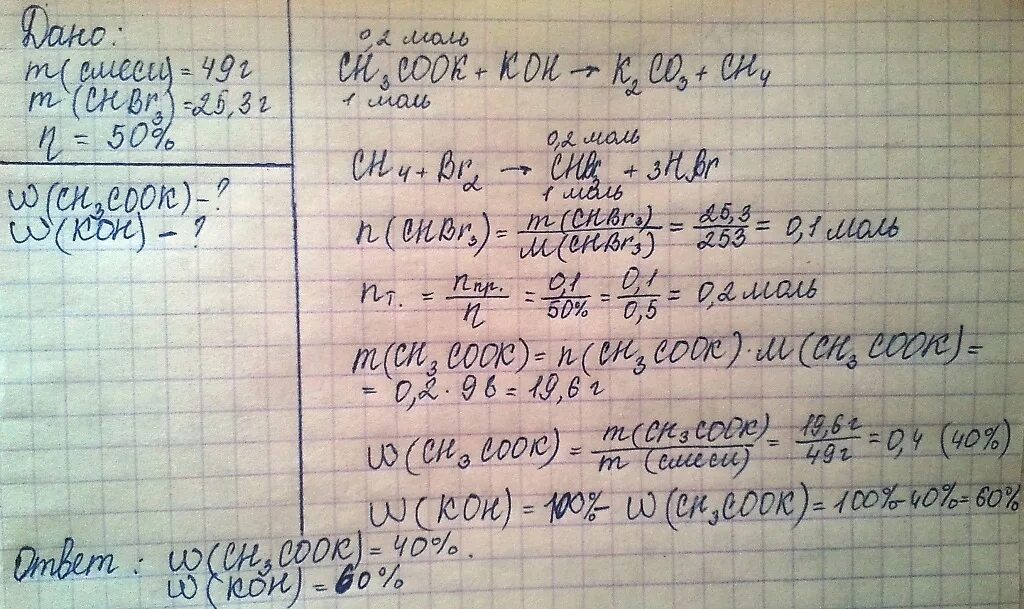 Дано:
m(смеси) = 49 г
m(CHBr₃) = 25,3 г
η = 50%
W(CH₃COOK) - ?
W(KOH) - ?
0,2 моль
CH₃COOK + KOH → K₂CO₃ + CH₄
1 моль
0,2 моль
CH₄ + Br₂ → CHBr₃ + 3HBr
1 моль
n(CHBr₃) = m(CHBr₃)/M(CHBr₃) = 25,3/253 = 0,1 моль
nт. = nпр./η = 0,1/50% = 0,1/0,5 = 0,2 моль
m(CH₃COOK) = n(CH₃COOK) · M(CH₃COOK) =
= 0,2 · 98 = 19,6 г
W(CH₃COOK) = m(CH₃COOK)/m(смеси) = 19,6 г/49 г = 0,4 (40%)
W(KOH) = 100% - W(CH₃COOK) = 100% - 40% = 60%
Ответ: W(CH₃COOK) = 40%.
W(KOH) = 60%